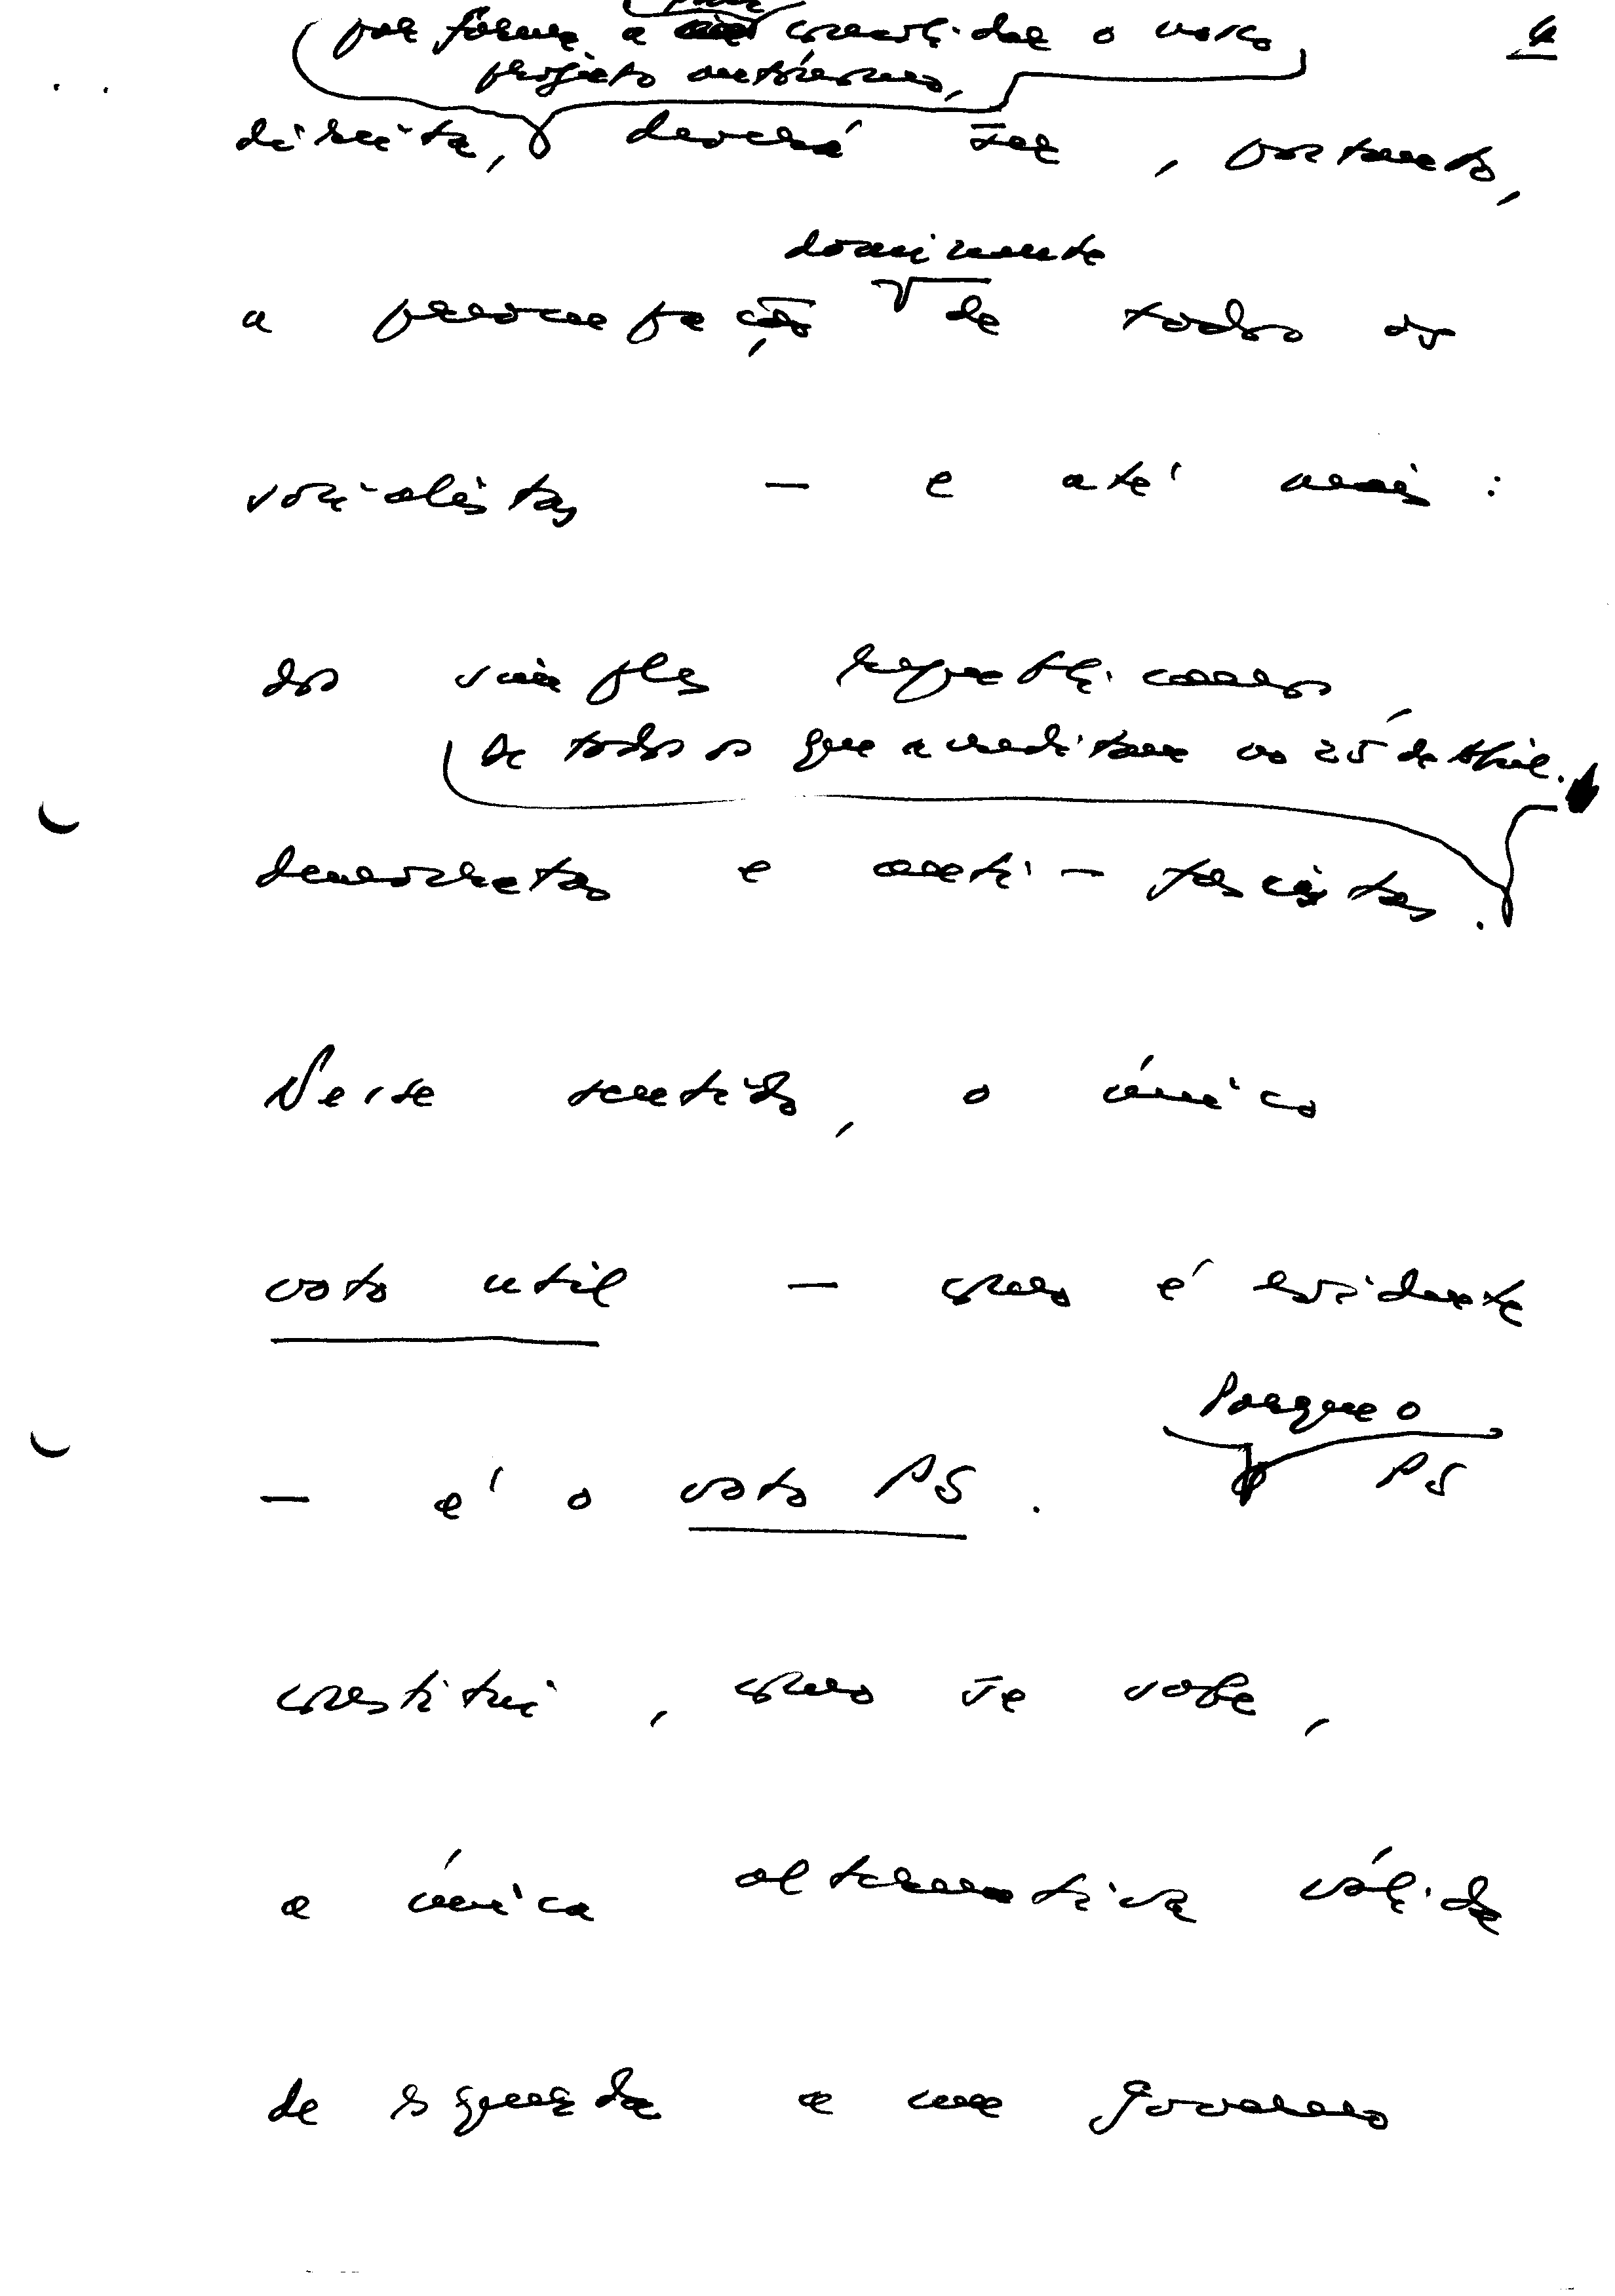 4
por forma a consolidar o nosso
projecto autónomo,
direita, deverá ser, portanto,
dominante
a preocupação de todos os
socialistas — e até mais:
dos simples republicanos,
de todos os que acreditam no 25 de Abril.
democratas e anti-fascistas.
Nesse sentido, o único
voto util — como é evidente
— é o voto PS.
Porque o
PS
constitui, como se sabe,
a única alternativa válida
de esquerda a um governo